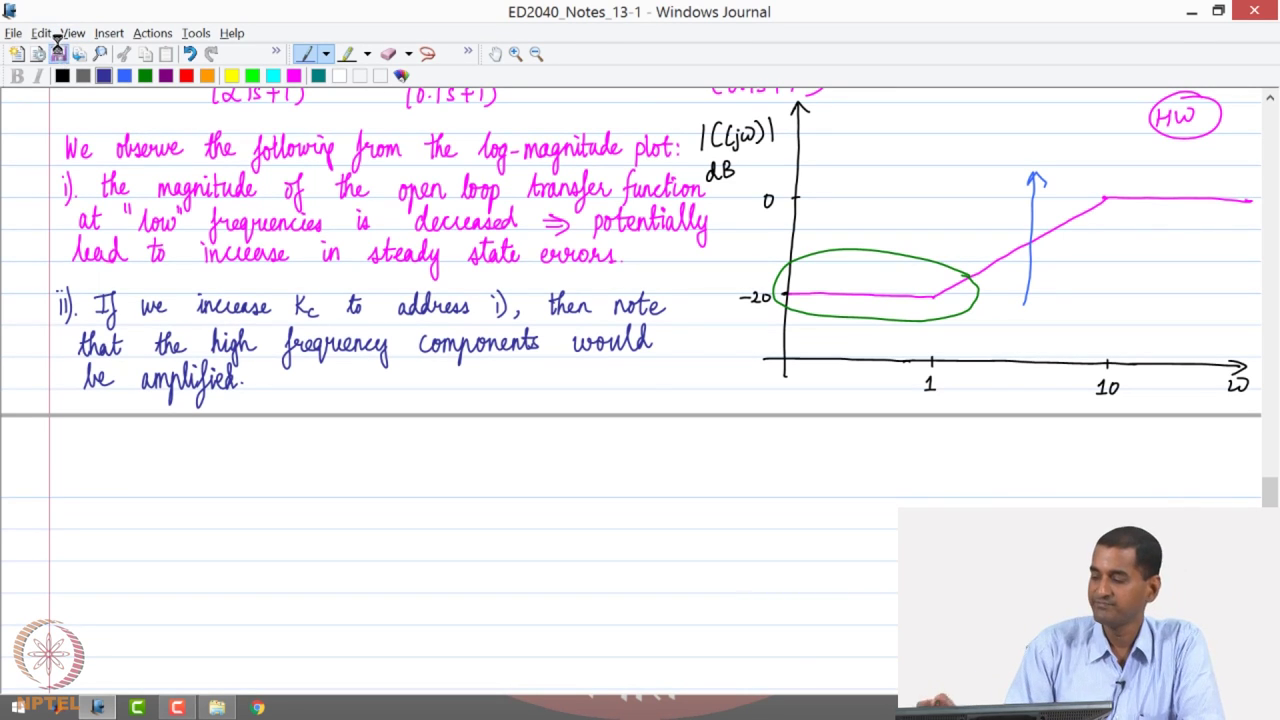 ED2040_Notes_13-1 - Windows Journal
File Edit View Insert Actions Tools Help
(0.1s+1)
HW
We observe the following from the log-magnitude plot:
i). the magnitude of the open loop transfer function
at "low" frequencies is decreased ⇒ potentially
lead to increase in steady state errors.
ii). If we increase Kc to address i), then note
that the high frequency components would
be amplified.
|C(jω)|
dB
0
-20
1
10
ω
NPTEL